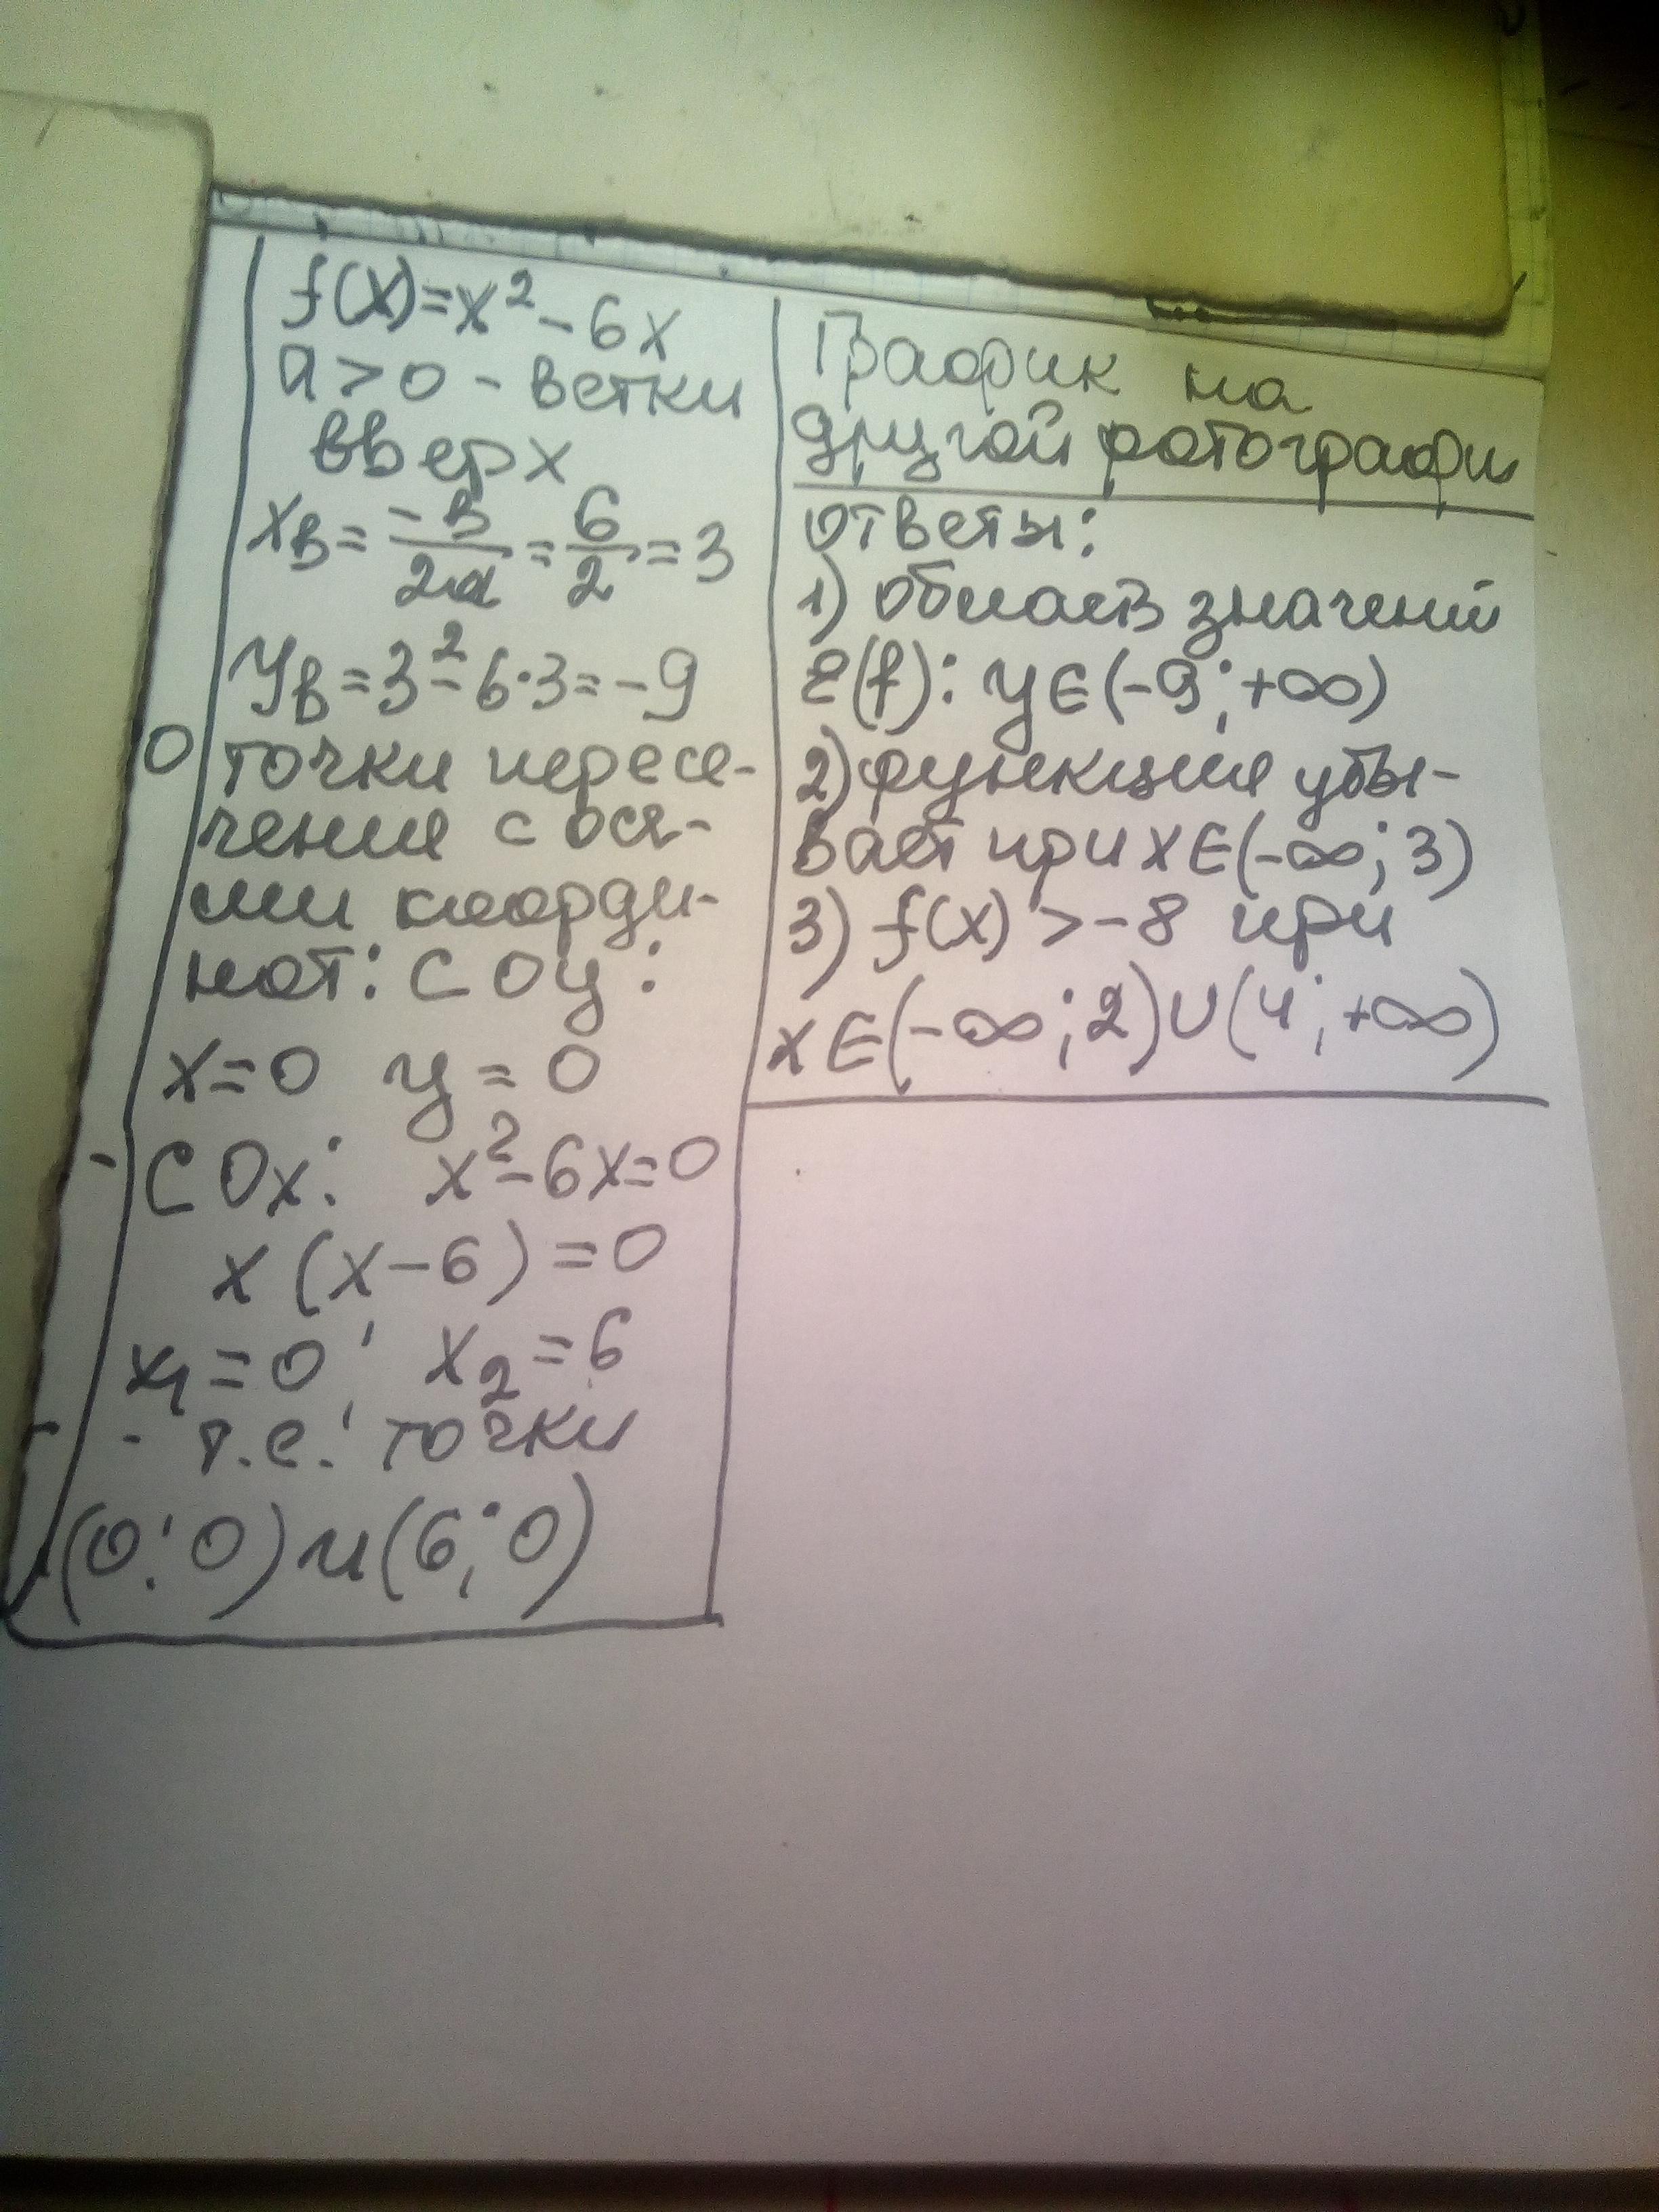 f(x)=x²-6x
a>0 - ветки
вверх
xв = -в/2a = 6/2 = 3
yв=3²-6·3=-9
точки пересе-
чения с ося-
ми коорди-
нат: С Oy:
x=0 y=0
С Ox: x²-6x=0
x(x-6)=0
x₁=0; x₂=6
- т.е. точки
(0;0) и (6;0)
График на
другой фотографи
ответы:
1) область значений
E(f): y∈(-9;+∞)
2) функция убы-
вает при x∈(-∞;3)
3) f(x)>-8 при
x∈(-∞;2)∪(4;+∞)